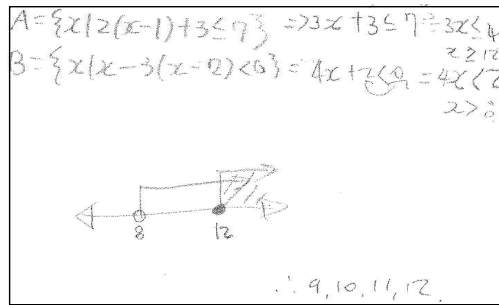 A = {x/2(x-1)+3≤7} => 3x+3≤7 = 3x≤4
x≥12
B = {x(x-3(x-2)<0} = 4x+2<0 = 4x<2
x>
8 12
∴ 9, 10, 11, 12.